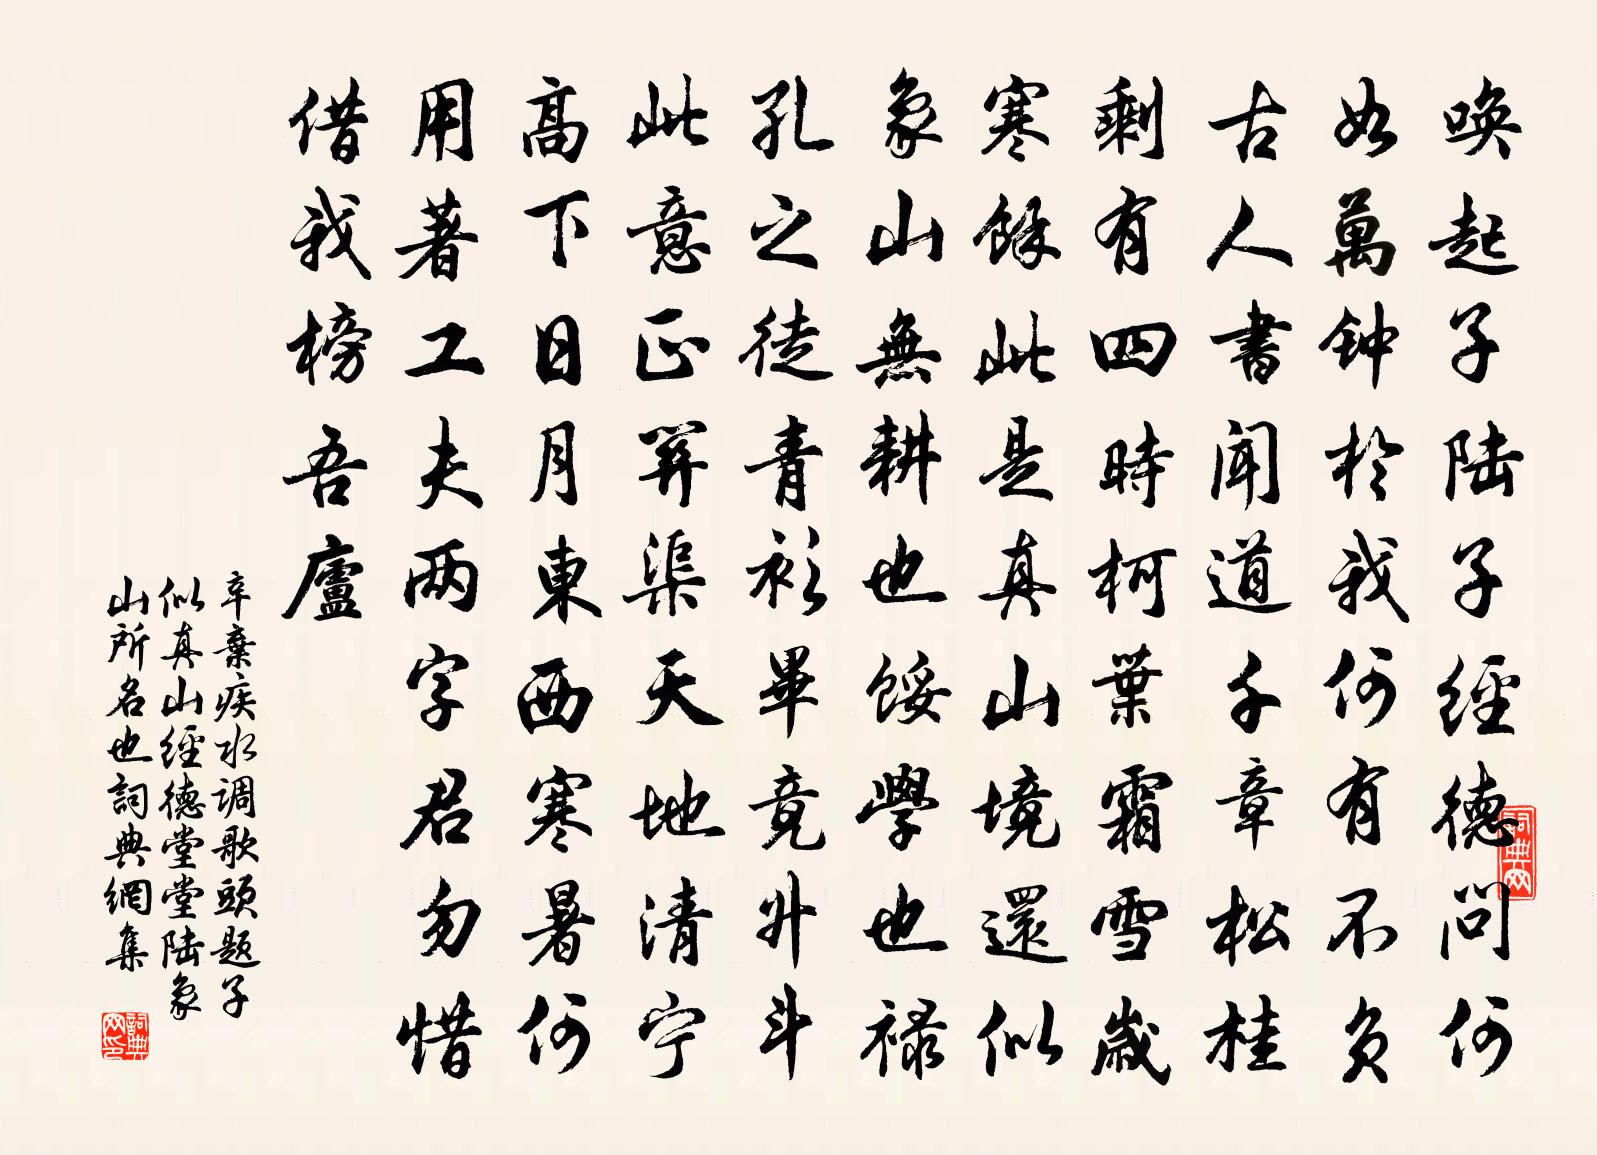 喚起子陆子經德問何
如萬钟於我何有不負
古人書闻道千章松桂
剩有四時柯葉霜雪歲
寒餘此是真山境還似
象山無耕也餒學也禄
孔之徒青衫畢竟升斗
此意正關渠天地清宁
高下日月東西寒暑何
用著工夫两字君勿惜
借我榜吾廬
辛棄疾水调歌頭题子
似真山經德堂堂陆象
山所名也詞典網集
詞典网
詞典网印